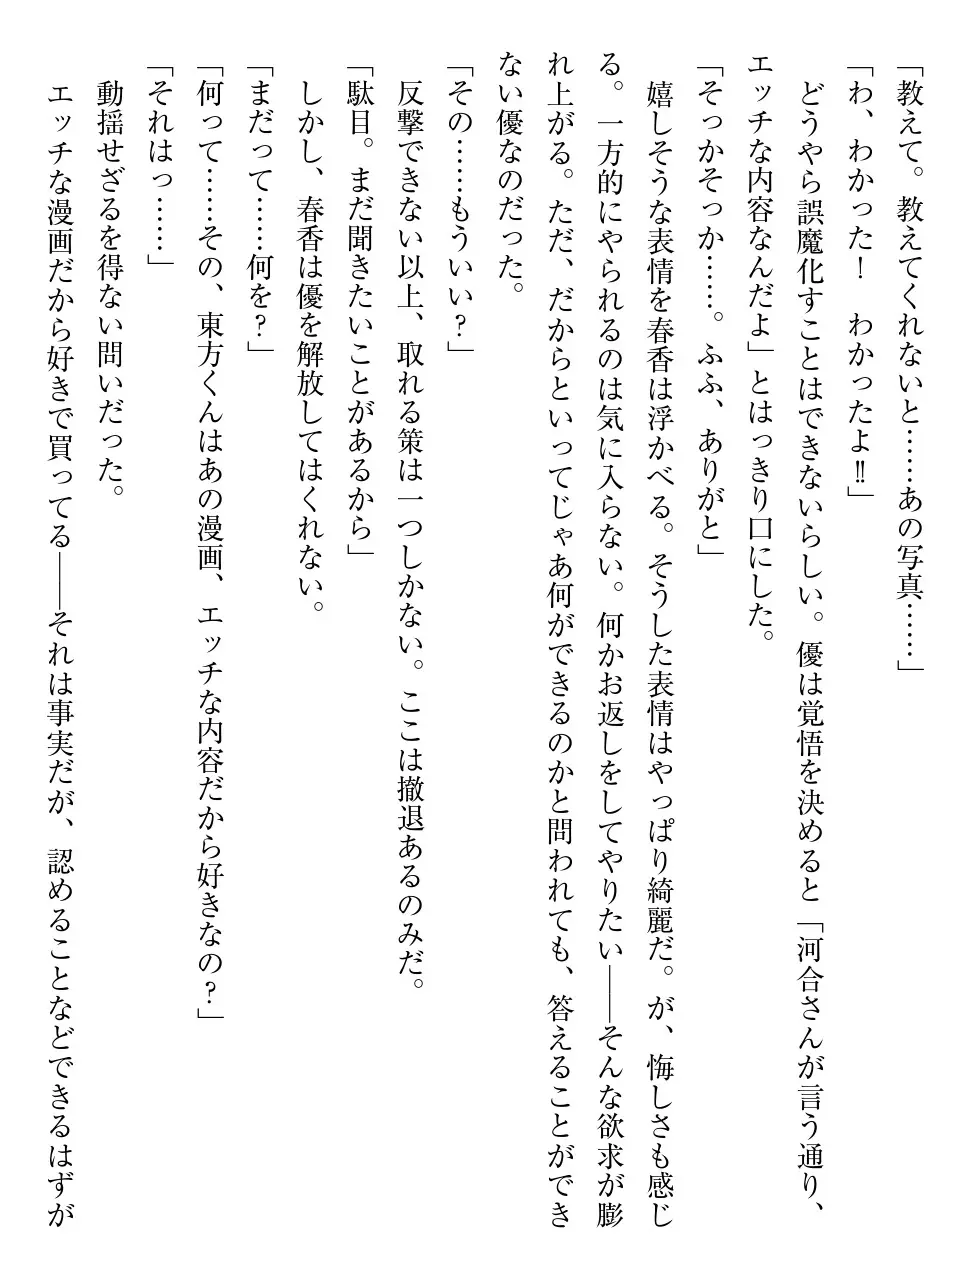 「教えて。教えてくれないと……あの写真……」
「わ、わかった！　わかったよ‼」
　どうやら誤魔化すことはできないらしい。優は覚悟を決めると「河合さんが言う通り、
エッチな内容なんだよ」とはっきり口にした。
「そっかそっか……。ふふ、ありがと」
　嬉しそうな表情を春香は浮かべる。そうした表情はやっぱり綺麗だ。が、悔しさも感じ
る。一方的にやられるのは気に入らない。何かお返しをしてやりたい――そんな欲求が膨
れ上がる。ただ、だからといってじゃあ何ができるのかと問われても、答えることができ
ない優なのだった。
「その……もういい？」
　反撃できない以上、取れる策は一つしかない。ここは撤退あるのみだ。
「駄目。まだ聞きたいことがあるから」
　しかし、春香は優を解放してはくれない。
「まだって……何を？」
「何って……その、東方くんはあの漫画、エッチな内容だから好きなの？」
「それはっ……」
　動揺せざるを得ない問いだった。
　エッチな漫画だから好きで買ってる――それは事実だが、認めることなどできるはずが